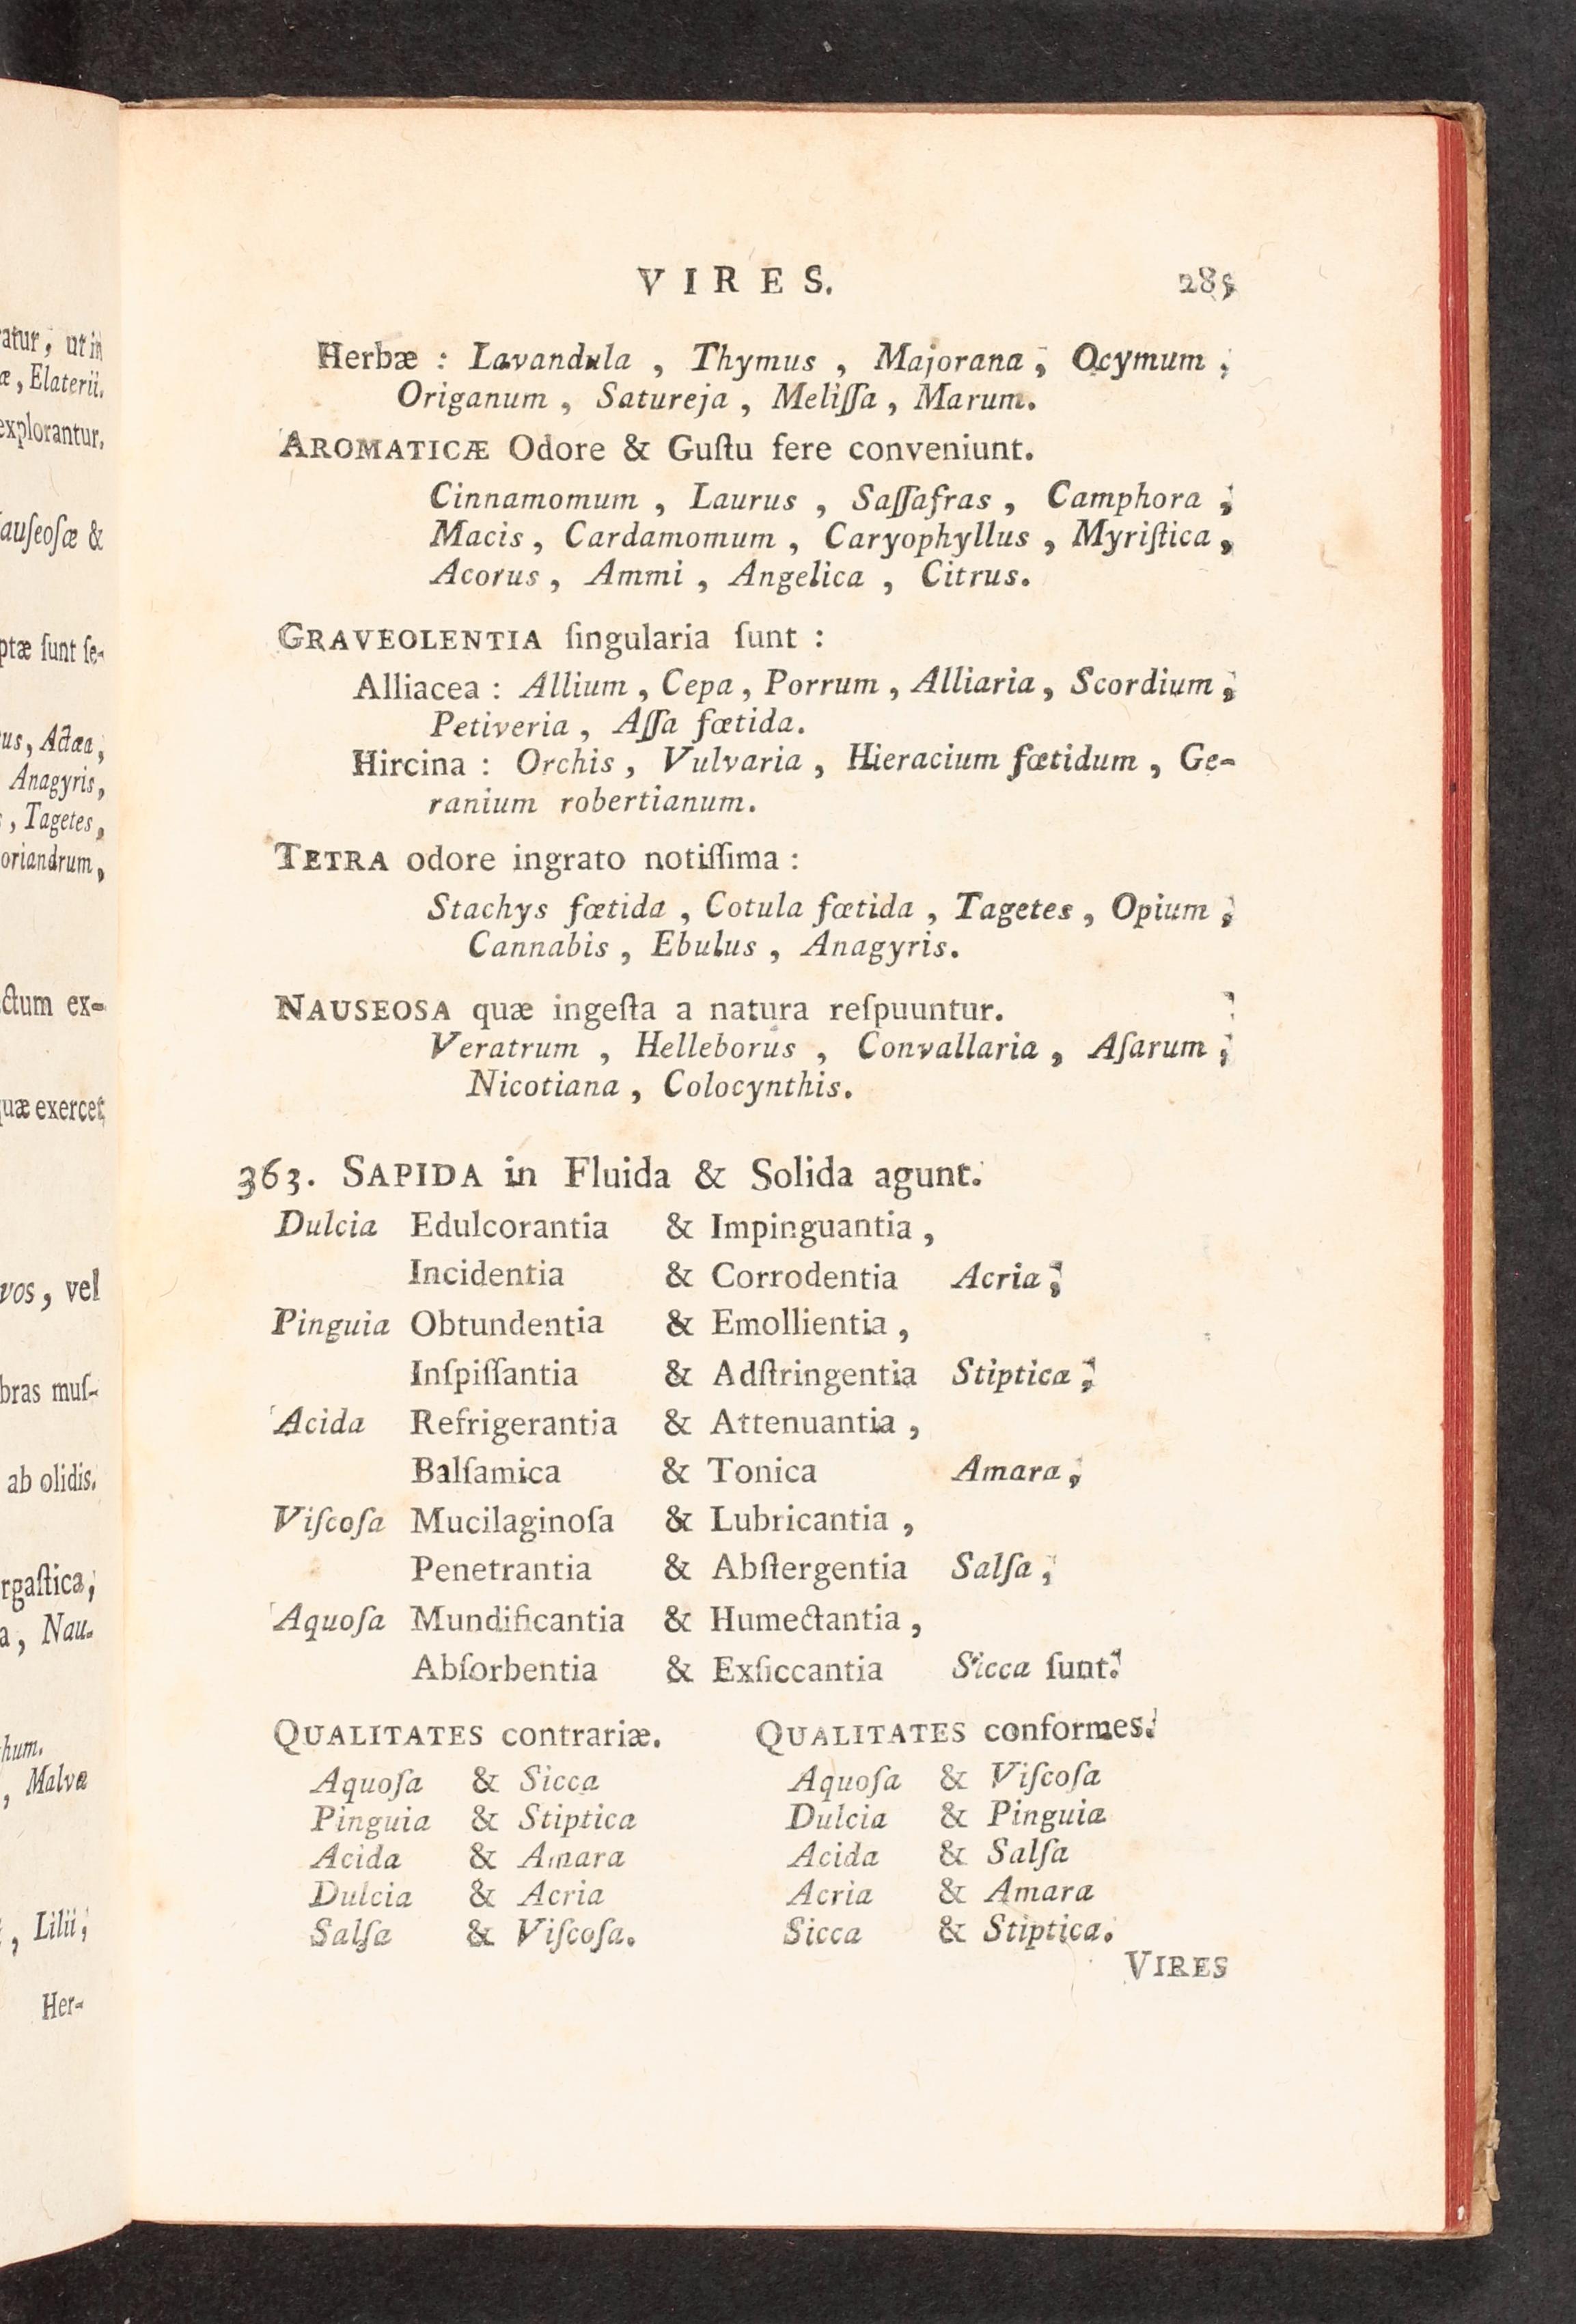 atur, ut in
æ, Elaterii.
explorantur,
auſeoſæ &
ptæ ſunt ſe-
us, Actæa,
Anagyris,
, Tagetes,
oriandrum,
ctum ex-
uæ exercet
vos, vel
bras muſ-
ab olidis.
rgaſtica,
a, Nau-
hum.
, Malva
, Lilii,
Her-
VIRES. 285
Herbæ : Lavandula , Thymus , Majorana , Ocymum ,
Origanum , Satureja , Meliſſa , Marum.
AROMATICÆ Odore & Guſtu fere conveniunt.
Cinnamomum , Laurus , Saſſafras , Camphora ,
Macis , Cardamomum , Caryophyllus , Myriſtica ,
Acorus , Ammi , Angelica , Citrus.
GRAVEOLENTIA ſingularia ſunt :
Alliacea : Allium , Cepa , Porrum , Alliaria , Scordium ,
Petiveria , Aſſa fœtida.
Hircina : Orchis , Vulvaria , Hieracium fœtidum , Ge-
ranium robertianum.
TETRA odore ingrato notiſſima :
Stachys fœtida , Cotula fœtida , Tagetes , Opium ,
Cannabis , Ebulus , Anagyris.
NAUSEOSA quæ ingeſta a natura reſpuuntur.
Veratrum , Helleborus , Convallaria , Aſarum ,
Nicotiana , Colocynthis.
363. SAPIDA in Fluida & Solida agunt.
Dulcia Edulcorantia & Impinguantia ,
Incidentia & Corrodentia Acria ,
Pinguia Obtundentia & Emollientia ,
Inſpiſſantia & Adſtringentia Stiptica ,
Acida Refrigerantia & Attenuantia ,
Balſamica & Tonica Amara ,
Viſcoſa Mucilaginoſa & Lubricantia ,
Penetrantia & Abſtergentia Salſa ,
Aquoſa Mundificantia & Humectantia ,
Abſorbentia & Exſiccantia Sicca ſunt.
QUALITATES contrariæ. QUALITATES conformes.
Aquoſa & Sicca Aquoſa & Viſcoſa
Pinguia & Stiptica Dulcia & Pinguia
Acida & Amara Acida & Salſa
Dulcia & Acria Acria & Amara
Salſa & Viſcoſa. Sicca & Stiptica.
VIRES